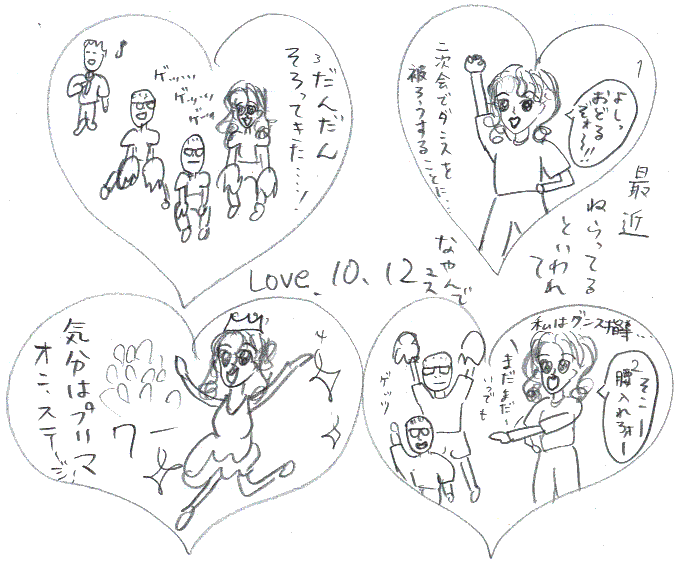 1
よしっ
おどる
ぞォ〜!!
二次会でダンスを
被ろうする
ことに…
2
そこー!
腰入れろォー
私はダンス指揮…
まだまだ〜
いつでも
ゲッツ
3
だんだん
そろってきた……!
ゲッツ
ゲッツ
ゲッツ
♪
4
気分はプリマ
オン、ステージ
ワー
最近
ねらってる
といわれ
て
なやんで
ユス
Love.10.12